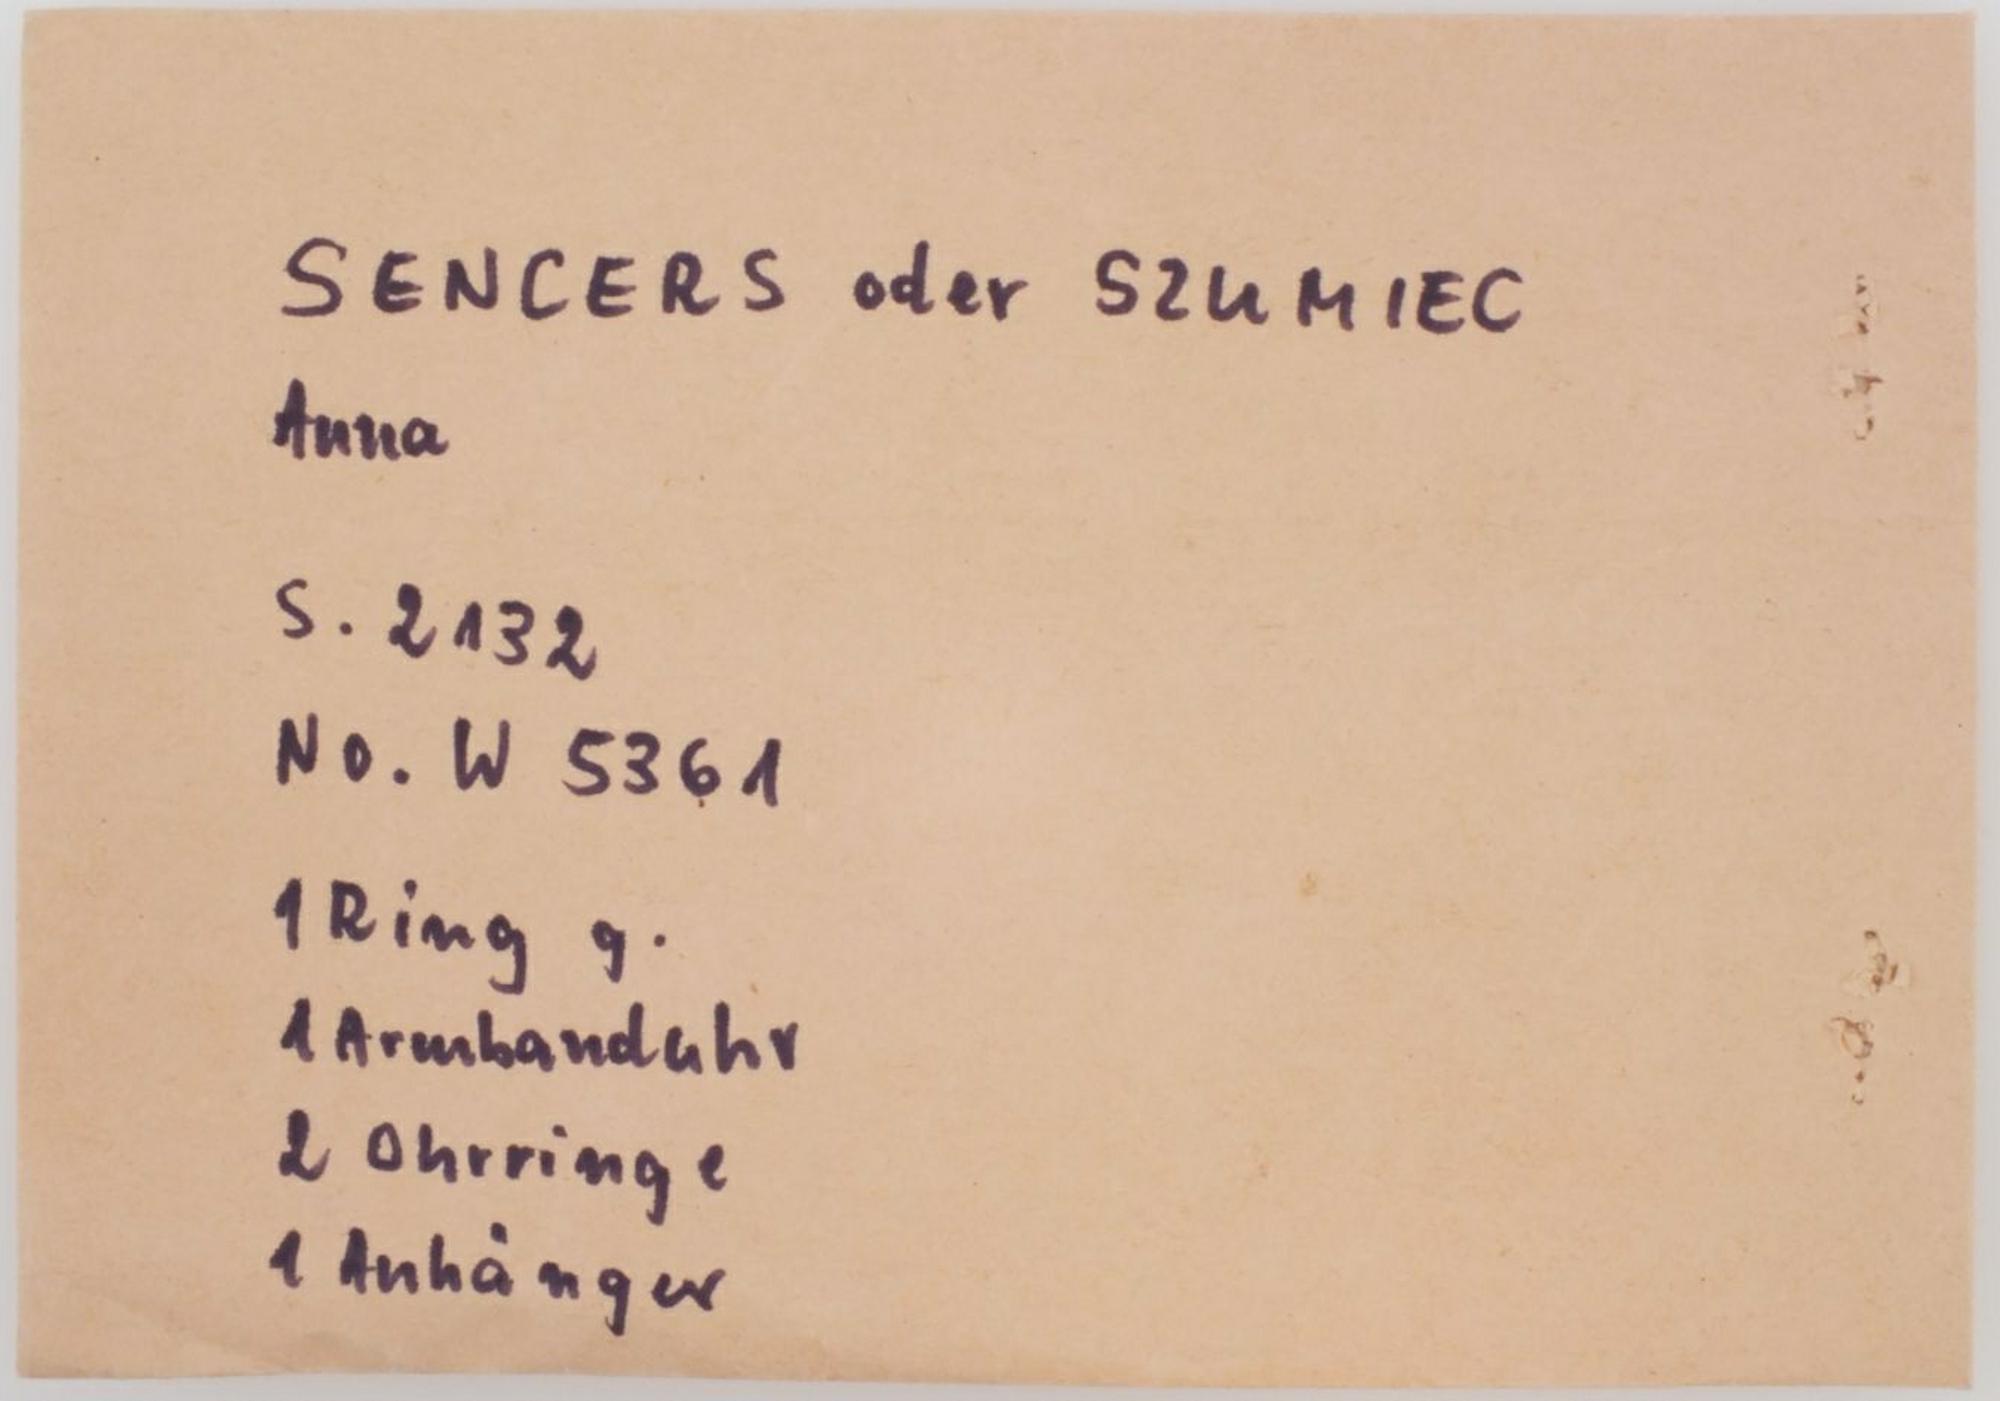 SENCERS oder SZUMIEC
Anna
S. 2132
No. W 5361
1 Ring g.
1 Armbanduhr
2 Ohrringe
1 Anhänger